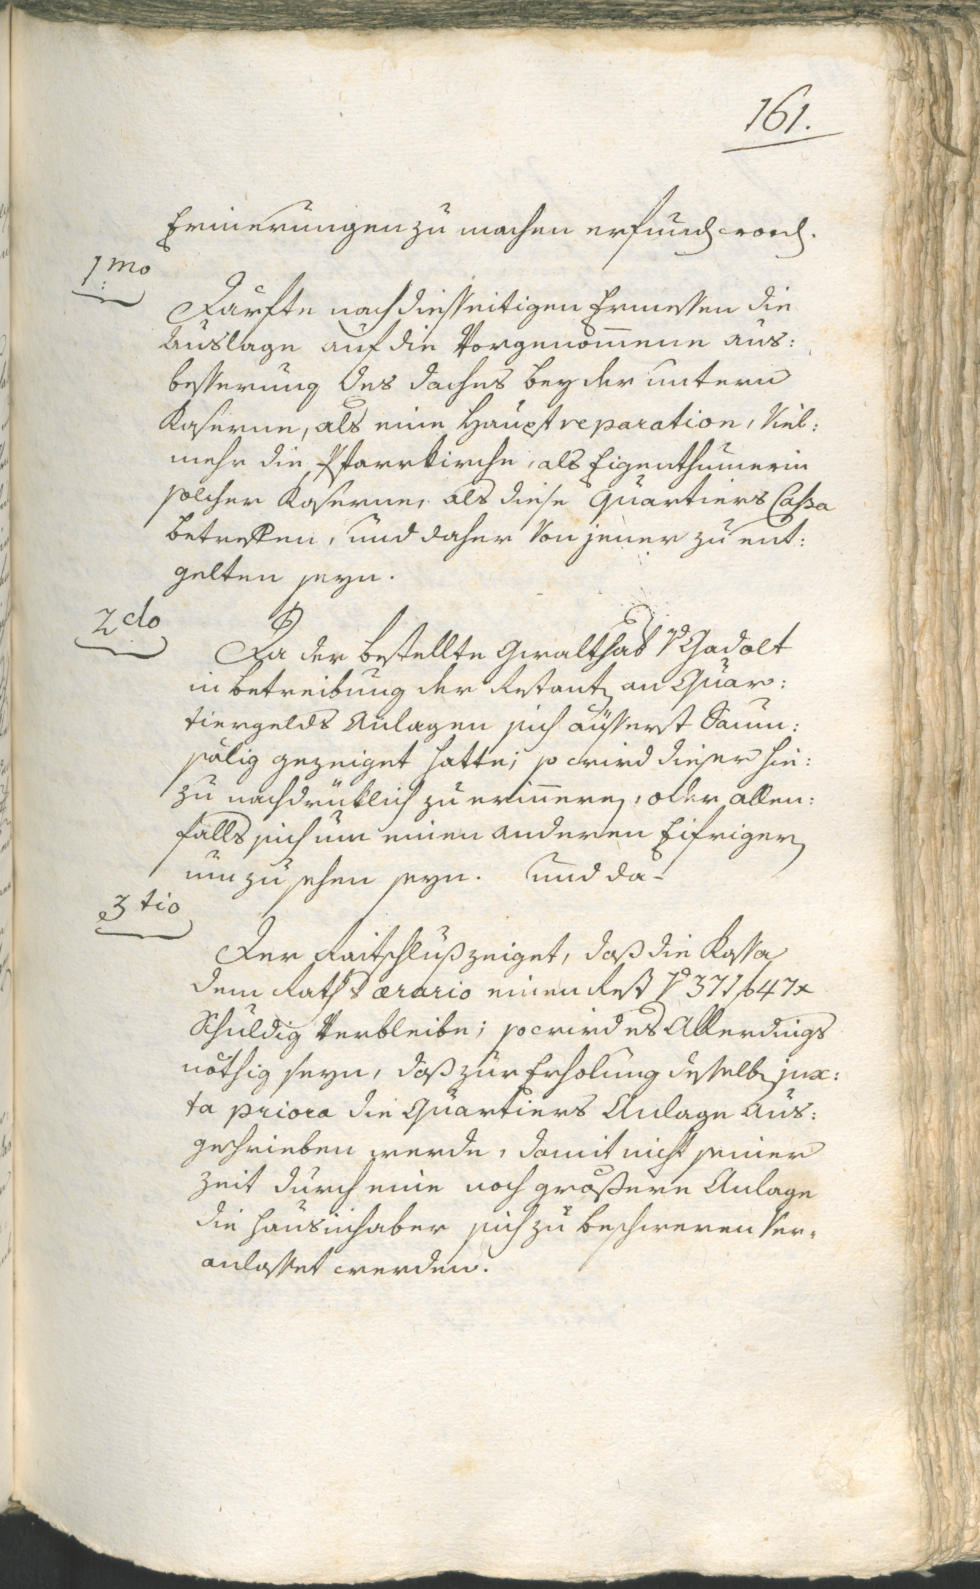 161.
Erinerungen zu machen erfund word.
1mo
Darfte nach diesseitigen Ermessen die
Auslage auf die Vorgenom̅ene aus:
besserung des daches bey der untern
Kaserne, als eine Haupt reparation, Viel:
mehr die Pfarrkirche, als Eigenthumerin
solcher Kaserne, als diese Quartiers Cassa
betreffen, und daher Von jener zu ent:
gelten seyn.
2do
Da der bestellte Gwalthab Gadolt
in betreibung der Restant an Quar:
tiergelds Anlagen sich äusserst Saum:
sälig gezeiget hatte; so wird dieser hie:
zu nachdrüklich zu erinnern, oder allen:
falls sich um einen anderen Eifrigern
um zu sehen seyn. Und da
3tio
Der Raitschluß zeiget, daß die Kassa
dem Raths ærario einen Rest 371 f 47 x
Schuldig Verbleibe; so wird es Allerdings
nöthig seyn, daß zur Erholung desselb jux:
ta priora die Quartiers Anlage aus:
geschrieben werde, damit nicht seiner
Zeit durch eine noch größere Anlage
die Hausinhaber sich zu beschweren Ver:
anlasset werden.